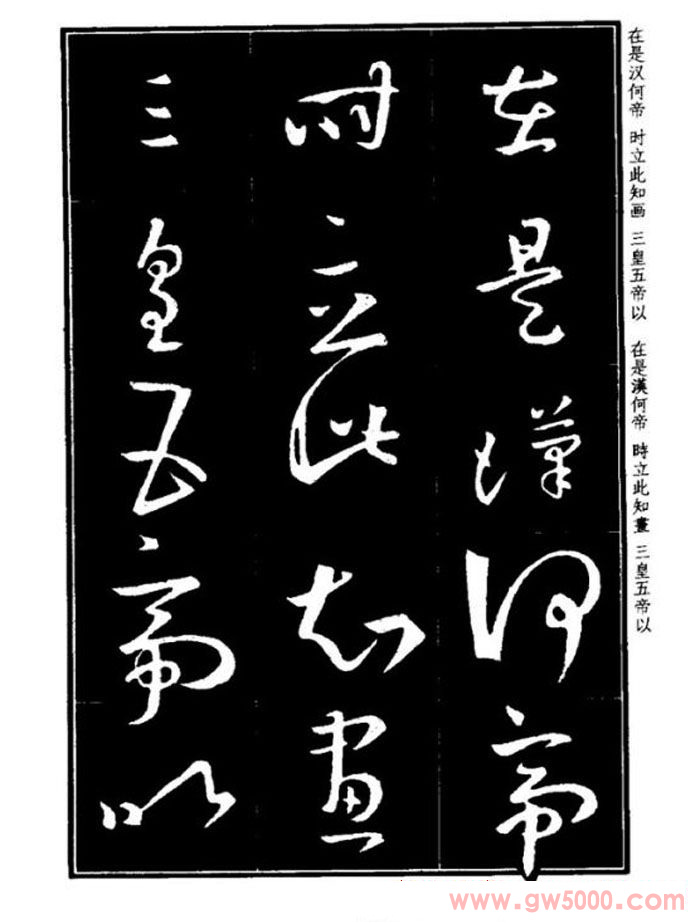 在是漢何帝
時立此知畫
三皇五帝以
在是汉何帝 时立此知画 三皇五帝以
在是漢何帝 時立此知畫 三皇五帝以
www.gw5000.com